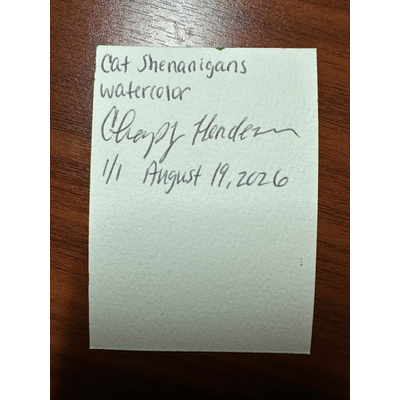 Cat Shenanigans
watercolor
1/1 August 19, 2026